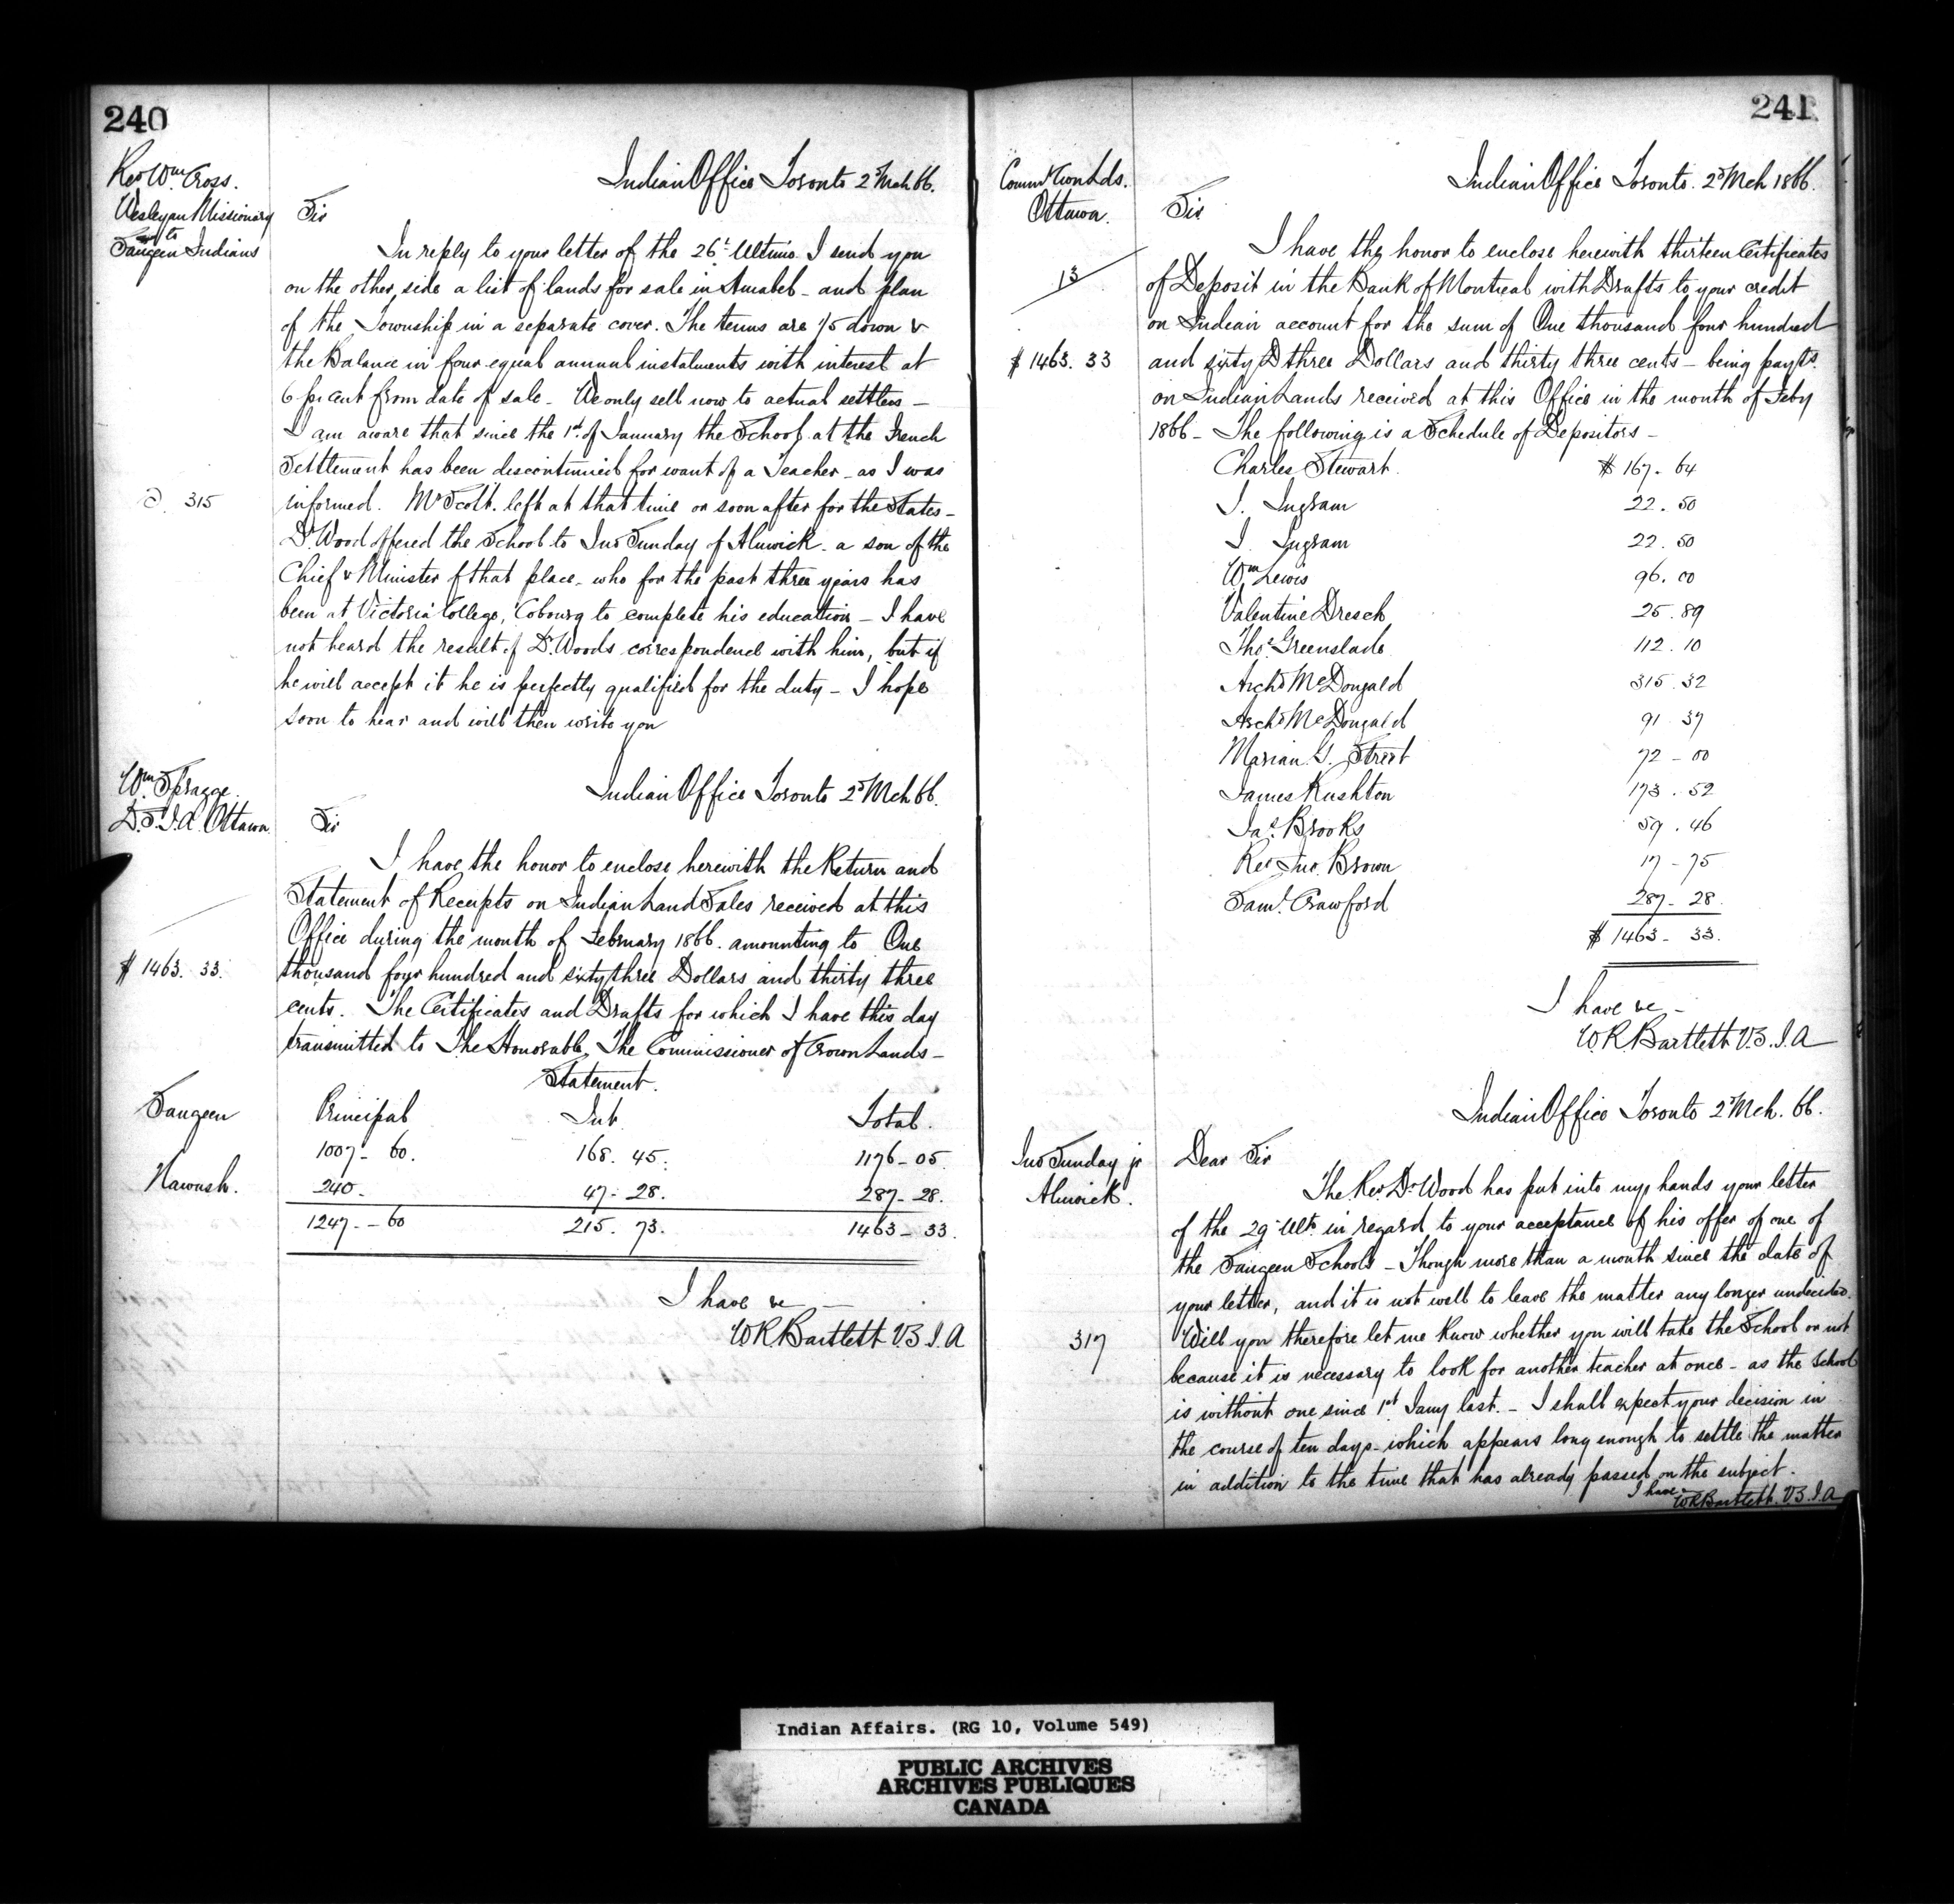 240
Rev Wm. Cross.
Wesleyan Missionary
to
Saugeen Indians
Indian Office Toronto 2d Mch 66.
Sir
In reply to your letter of the 26t Ultimo. I send you
on the other side a list of lands for sale in Amabel - and plan
of the Township in a separate cover. The terms are 1/5 down &
the Balance in four equal annual instalments with interest at
6 pr cent from date of sale - We only sell now to actual settlers -
I am aware that since the 1st of January the School at the French
Settlement has been discontinued for want of a Teacher - as I was
315
informed. Mr Scott. left at that time or soon after for the States -
Dr. Wood offered the School to Jno Sunday of Alnwick - a son of the
Chief & Minister of that place - who for the past three years has
been at Victoria College, Cobourg to complete his education - I have
not heard the result of Dr. Woods correspondence with him, but if
he will accept it he is perfectly qualified for the duty - I hope
soon to hear and will then write you
Wm. Spragge.
D.S.I.A. Ottawa
Indian Office Toronto 2d Mch 66.
Sir
I have the honor to enclose herewith the Return and
Statement of Receipts on Indian Land Sales received at this
Office during the month of February 1866. amounting to One
$ 1463. 33.
thousand four hundred and sixty three Dollars and thirty three
cents. The Certificates and Drafts for which I have this day
transmitted to The Honorable, The Commissioner of Crown Lands -
Statement.
Principal Int. Total.
Saugeen 1007 - 60. 168. 45. 1176 - 05.
Nawash. 240. - 47 - 28. 287 - 28.
1247 - - 60 215. 73. 1463 - 33.
I have &c -
W.R. Bartlett V.S.I.A
241
Comm Crown Lds.
Ottawa.
Indian Office Toronto. 2d Mch 1866.
Sir
I have the honor to enclose herewith thirteen Certificates
13
of Deposit in the Bank of Montreal with Drafts to your credit
on Indian account for the sum of One thousand four hundred
$ 1463. 33
and sixty three Dollars and thirty three cents - being payts.
on Indian Lands received at this Office in the month of Feby
1866 - The following is a Schedule of Depositors -
Charles Stewart. $ 167 - 64
J. Ingram 22. 50
J. Ingram 22. 50
Wm Lewis 96. 00
Valentine Dresch 25. 89
Thos. Greenslade 112. 10
Archd McDougald 315. 32
Archd McDougald 91 37
Marian G. Street 72 - 00
James Rushton 173. 52
Jas. Brooks 59. 46
Rev Jno. Brown 17 - 75
Saml. Crawford 287 - 28.
$ 1463 - 33.
I have &c -
W.R. Bartlett V.S.I.A
Indian Office Toronto 2d Mch. 66.
Jno Sunday jr
Alnwick.
Dear Sir
The Rev Dr Wood has put into my hands your letter
of the 29 Ult. in regard to your acceptance of his offer of one of
the Saugeen Schools - Though more than a month since the date of
your letter, and it is not well to leave the matter any longer undecided.
317
Will you therefore let me know whether you will take the School or not
because it is necessary to look for another teacher at once - as the School
is without one since 1st Jany last. - I shall expect your decision in
the course of ten days - which appears long enough to settle the matter
in addition to the time that has already passed on the subject.
I have
W.R. Bartlett. V.S.I.A
Indian Affairs. (RG 10, Volume 549)
PUBLIC ARCHIVES
ARCHIVES PUBLIQUES
CANADA